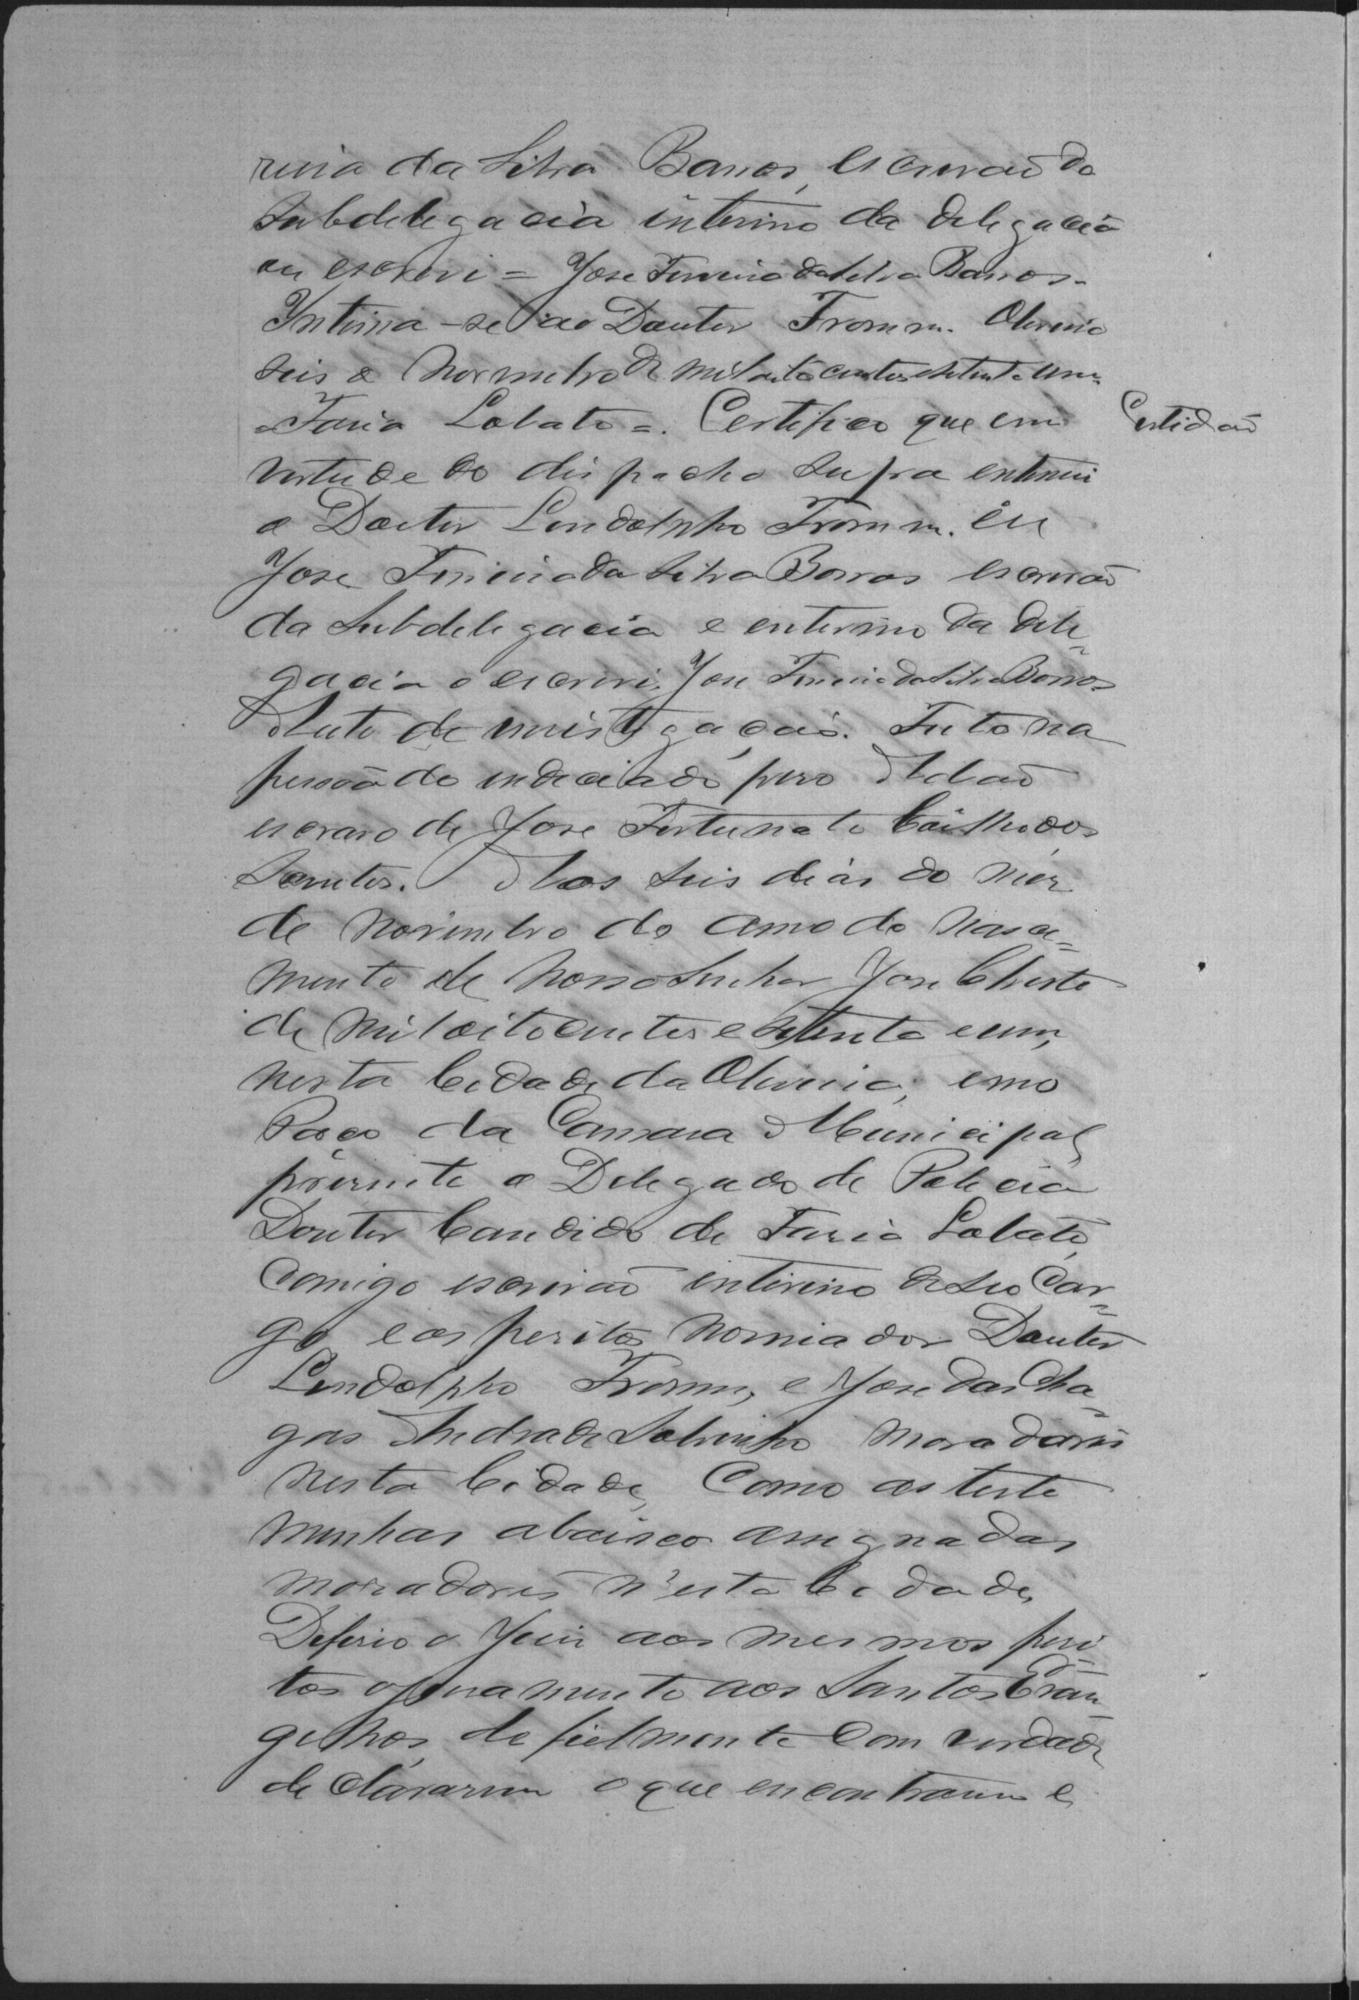 reira da Silva Barros, escrivaõ da
Subdelegacia interino da delegacia
eu escrevi = Jose Ferreira da Silva Barros.
Intima-se ao Douter Fromm. Oliveira
seis de Novembro de mil oito centos e setenta e um
= Faria Lobato =. Certifico que em
Certidaõ
vertude do dispacho supra entimei
o Douter Lendolpho Fromm. Eu
Jose Ferreira da Silva Barros escrivaõ
da Subdelegacia e enterino da dele=
gacia o escrevi, Jose Ferreira da Silva Barros
Auto de investigaçaõ. Feto na
pessoa do indeciado preso Adaõ
escravo de Jose Fortunato Coilho dos
Santos. Aos seis dias do mez
de Novembro do anno do Nasci=
mento de Nosso Senhor Jesu Christo
de mil oito centos e setenta e um,
nesta Cidade da Oliveira, e no
Paço da Camara Municipal,
prezente o Delegado de Policia
Douter Candido de Faria Lobato,
Comigo escrivaõ interino de seo Car=
go e os peritos nomiados Douter
Lendolpho Fromm, e Jose das Cha=
gas Andrade Sobrinho moradores
nesta Cidade, Como as teste
munhas abaixo assignadas
moradores n'esta Cidade,
Deferio o Juiz aos mesmos peri=
tos o juramento aos Santos Evan=
gelhos, de fielmente Com verdade
de clararem o que encontrarem e